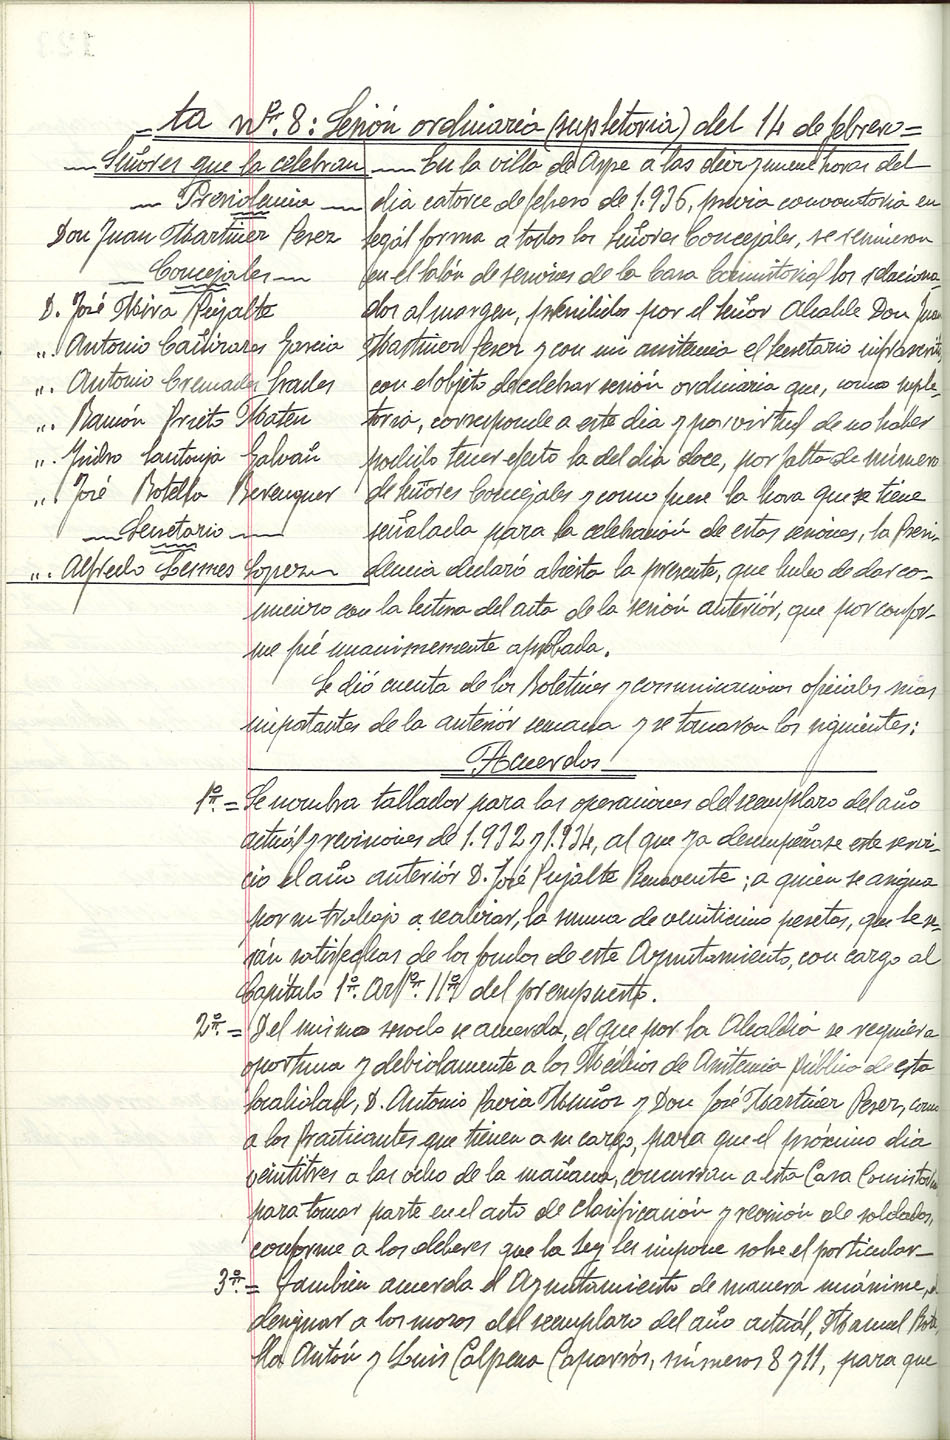 =ta Nº. 8: Sesión ordinaria (supletoria) del 14 de febrero=
Señores que la celebran
Presidencia
Don Juan Martinez Perez
Concejales
D. José Mira Pujalte
„. Antonio Cañizares Garcia
„. Antonio Cremades Grades
„. Ramón Prieto Maten
„. Isidro Santonja Galvañ
„. José Botella Berenguer
Secretario
„. Alfredo Lesmes Lopez
En la villa de Aspe a las diez y nueve horas del
dia catorce de febrero de 1.936, previa convocatoria en
legál forma a todos los Señores Concejales, se reunieron
en el Salón de sesiones de la Casa Consistorial los relaciona-
dos al margen, presididos por el Señor Alcalde Don Juan
Martinez Perez y con mi asistencia el Secretario infrascrito
con el objeto de celebrar sesión ordinaria que, como suple-
toria, corresponde a este dia y por virtud de no haber
podido tener efecto la del dia doce, por falta de número
de Señores Concejales y como fuese la hora que se tiene
señalada para la celebración de estas sesiones, la Presi-
dencia declaró abierta la presente, que hubo de dar co-
mienzo con la lectura del acta de la sesión anteriór, que por confor-
me fué unanimemente aprobada.
Se dió cuenta de los Boletines y comunicaciones oficiales más
importantes de la anteriór semana y se tomaron los siguientes:
Acuerdos
1º.= Se nombra tallador para las operaciones del reemplazo del año
actuál y revisiones de 1.932 y 1.934, al que ya desempeñase este servi-
cio el año anteriór D. José Pujalte Benavente; a quien se asigna
por su trabajo a realizar, la suma de veinticinco pesetas, que le se-
rán satisfechas de los fondos de este Ayuntamiento, con cargo al
Capítulo 1º. Artº. 11º del presupuesto.
2º.= Del mismo modo se acuerda, el que por la Alcaldía se requiera
oportuna y debidamente a los Médicos de Asistencia Pública de esta
localidad, D. Antonio Pavia Muñoz y Don José Martinez Perez, como
a los Practicantes que tienen a su cargo, para que el próximo dia
veintitres a las ocho de la mañana, concurran a esta Casa Consistorial
para tomar parte en el acto de clasificación y revisión de soldados,
conforme a los deberes que la Ley les impone sobre el particular-
3º.= Tambien acuerda el Ayuntamiento de manera unánime, el
designar a los mozos del reemplazo del año actuál, Manuel Bote-
lla Antón y Luis Calpena Caparrós, números 8 y 11, para que